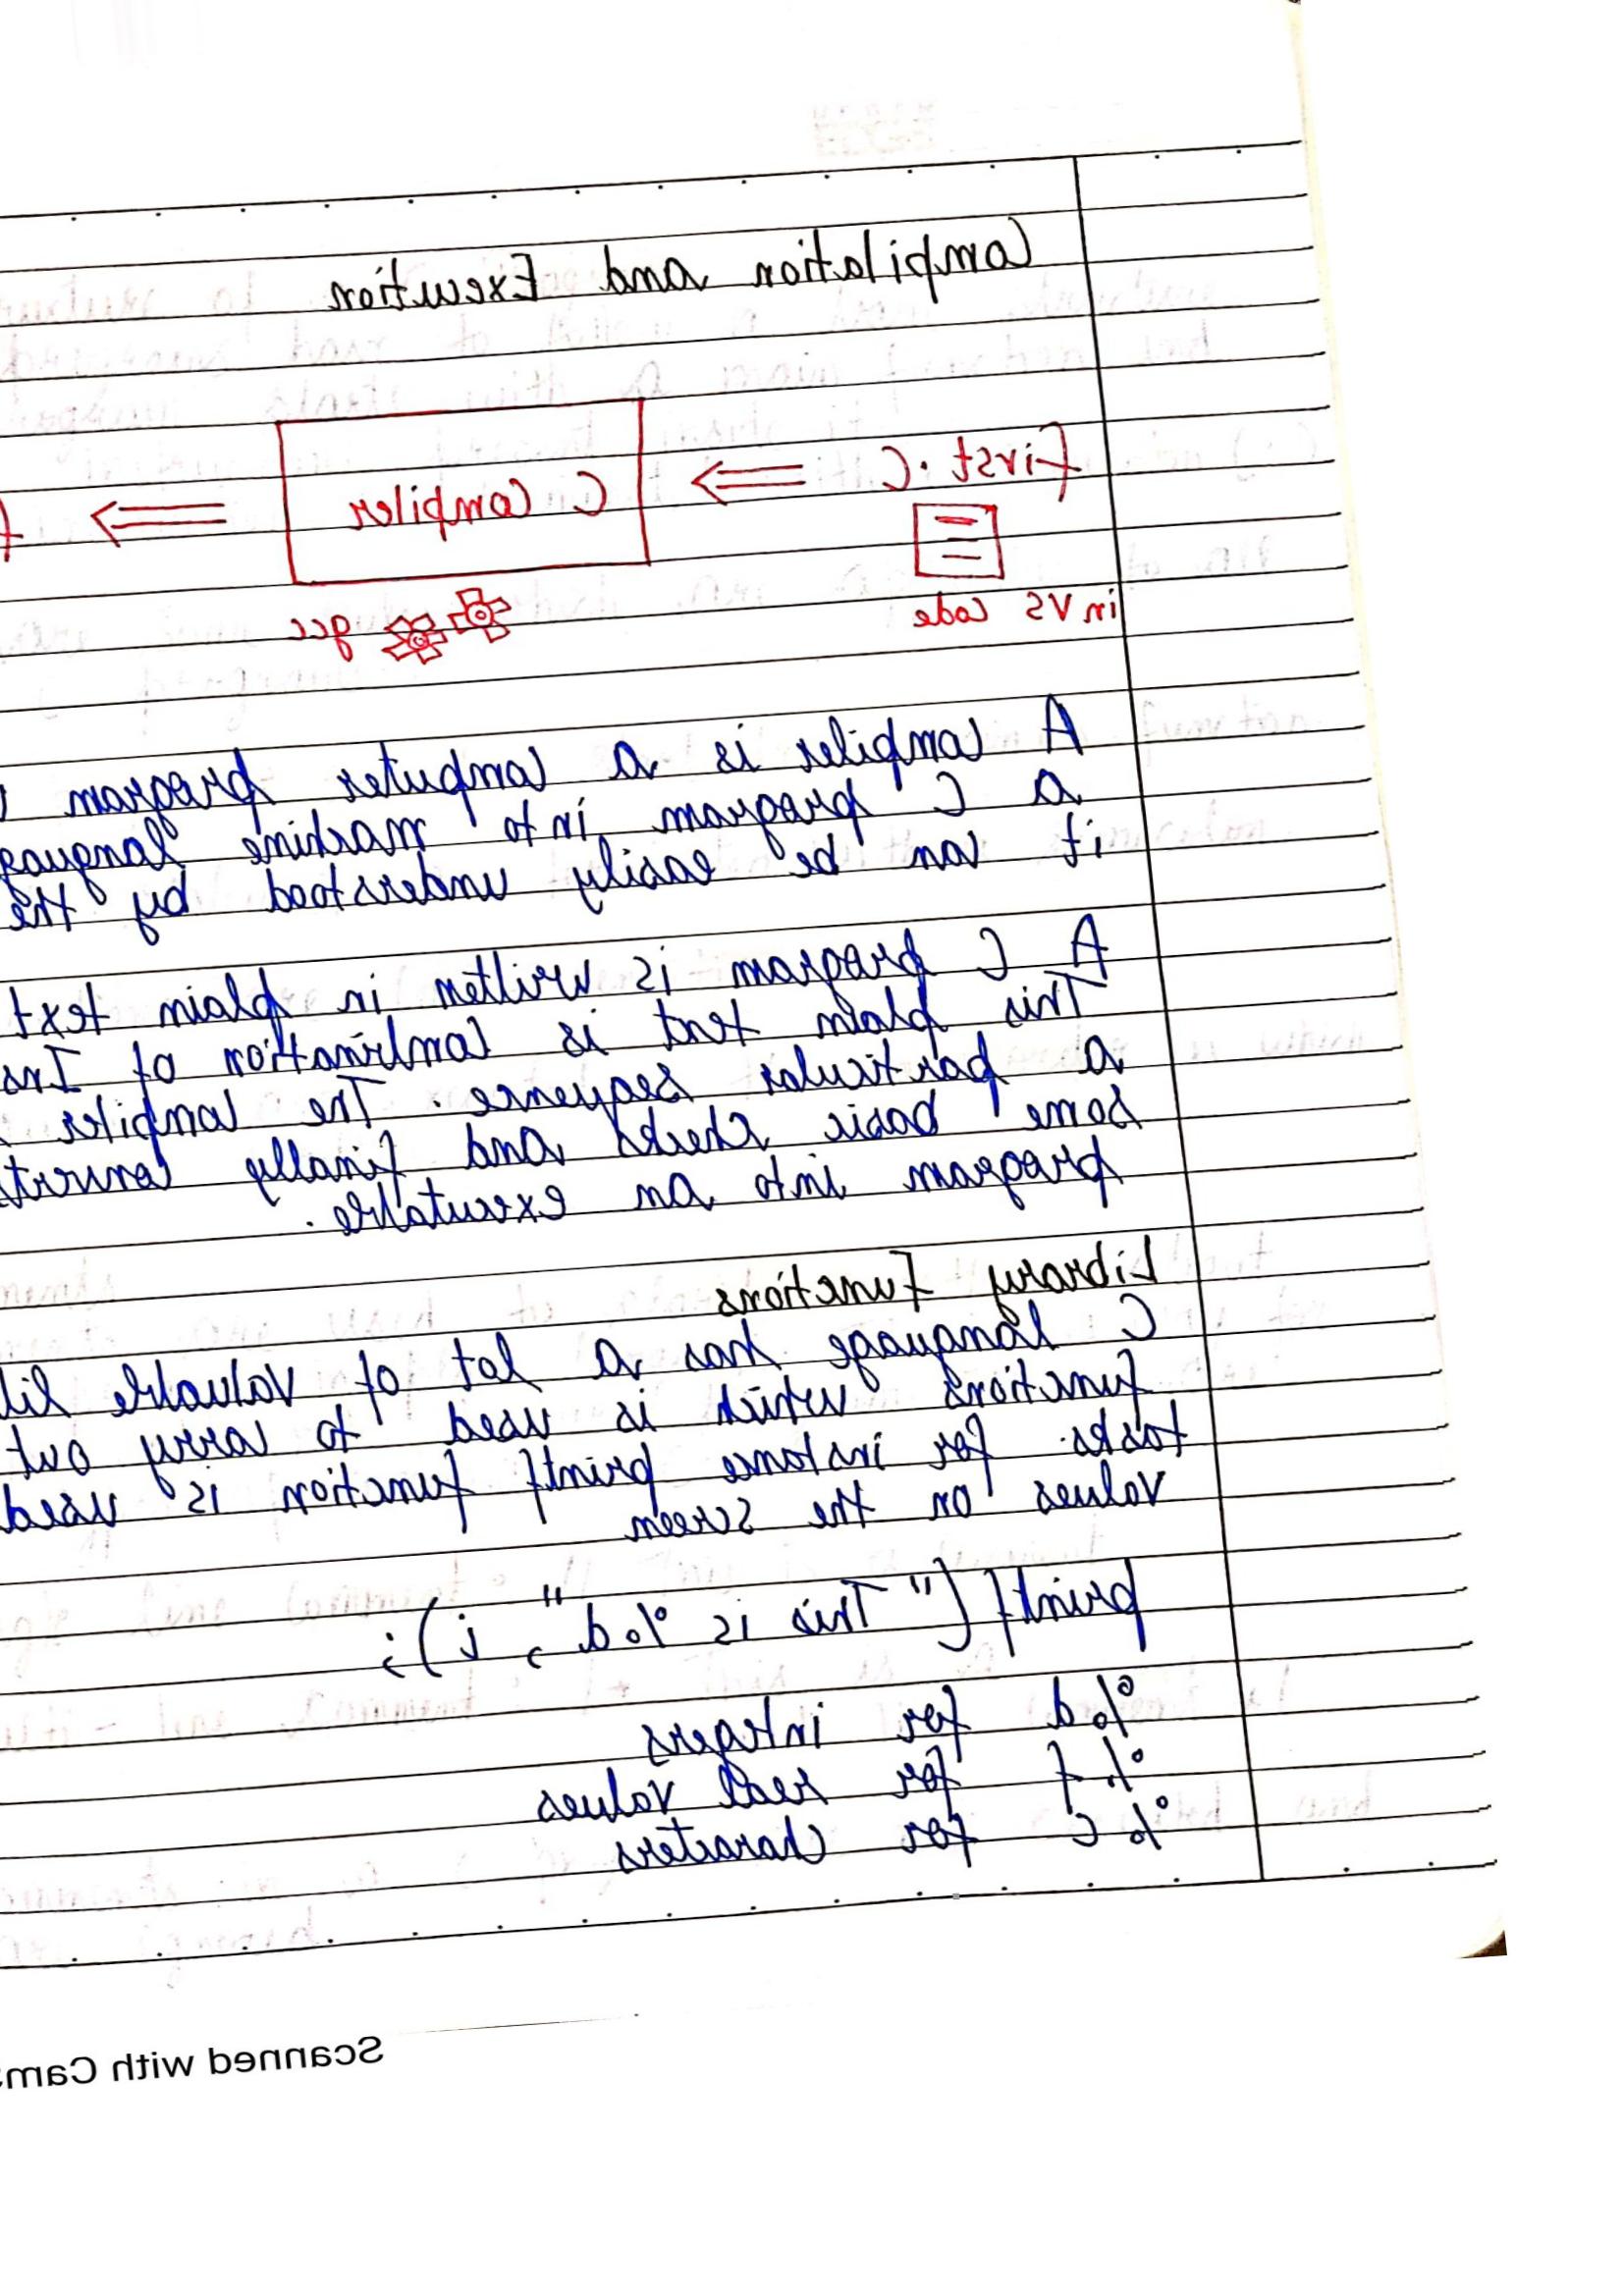 Compilation and Execution
first.c ⇒ C Compiler ⇒ f
in VS Code
gcc
A compiler is a computer program
a C program into machine languag
it can be easily understood by the
A C program is written in plain text
This plain text is combination of Ins
a particular sequence. The compiler
some basic checks and finally convert
program into an executable.
Library Functions
C language has a lot of valuable li
functions which is used to carry out
tasks. for instance printf function is used
values on the screen
printf ("This is %d", i);
%d for integers
%f for real values
%c for characters
Scanned with Cam